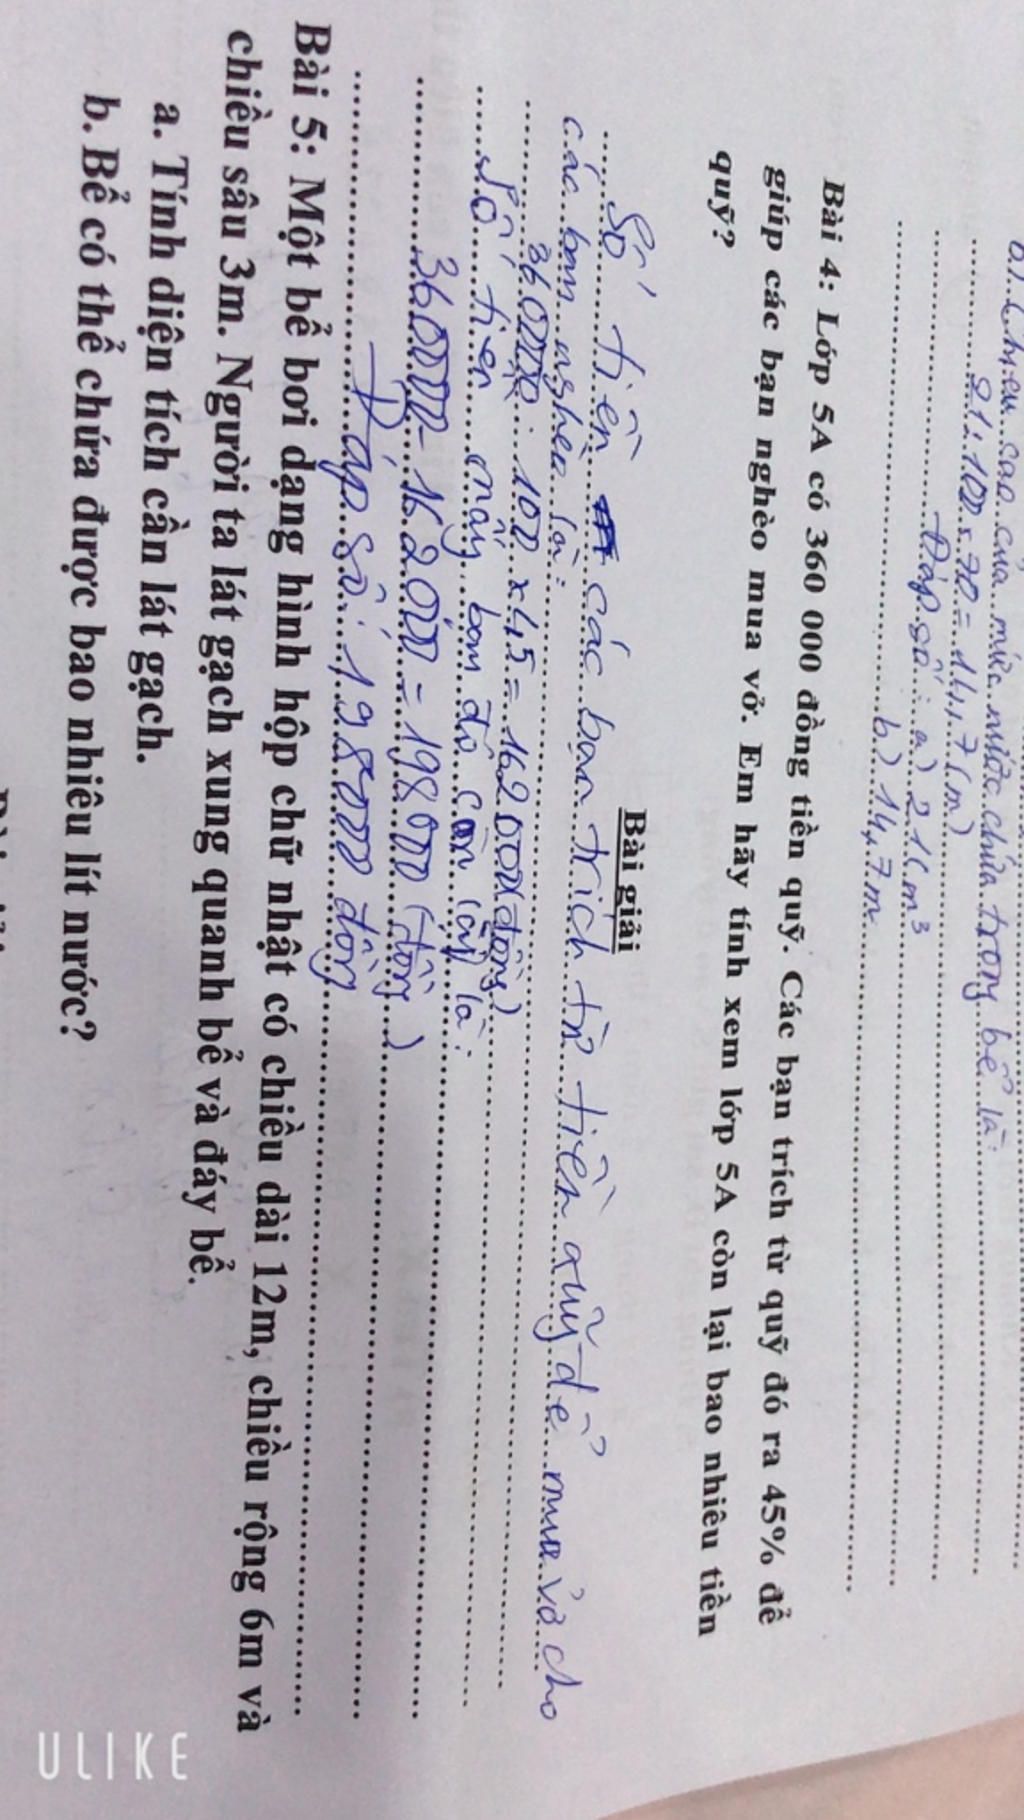 b). Chiều cao của mức nước chứa trong bể là:
21:100 x 70 = 14,7 (m)
Đáp số: a) 21 (m³
b) 14,7 m
Bài 4: Lớp 5A có 360 000 đồng tiền quỹ. Các bạn trích từ quỹ đó ra 45% để
giúp các bạn nghèo mua vở. Em hãy tính xem lớp 5A còn lại bao nhiêu tiền
quỹ?
Bài giải
Số tiền các bạn trích từ tiền quỹ để mua vở cho
các bạn nghèo là:
360000 : 100 x 45 = 162000 (đồng)
Số tiền mấy bạn đó còn lại là:
360000 - 162000 = 198000 (đồng)
Đáp số: 198000 đồng
Bài 5: Một bể bơi dạng hình hộp chữ nhật có chiều dài 12m, chiều rộng 6m và
chiều sâu 3m. Người ta lát gạch xung quanh bể và đáy bể.
a. Tính diện tích cần lát gạch.
b. Bể có thể chứa được bao nhiêu lít nước?
ULIKE